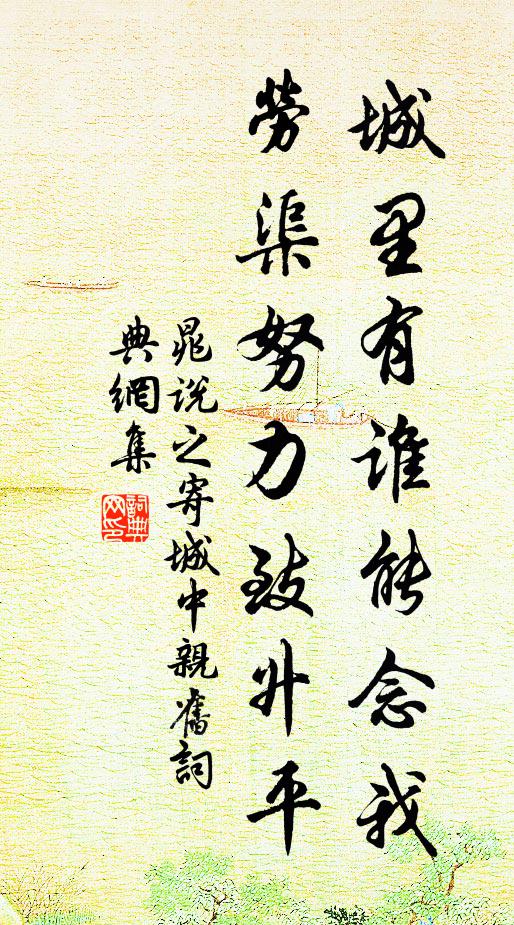 城里有誰能念我
勞渠努力致升平
晁說之寄城中親舊詞
典網集
詞典
网印